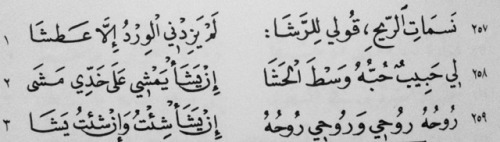 ٢٥٧ نَسَمَاتِ الرِّيحِ، قُولِي لِلرَّشَا: لَمْ يَزِدْنِي الوِرْدُ إِلَّا عَطَشَا ١
٢٥٨ لِي حَبِيبٌ حُبُّهُ وَسْطَ الْحَشَا إِنْ يَشَأْ يَمْشِي عَلَى خَدِّي مَشَى ٢
٢٥٩ رُوحُهُ رُوحِي وَرُوحِي رُوحُهُ إِنْ يَشَأْ شِئْتُ وَإِنْ شِئْتُ يَشَا ٣